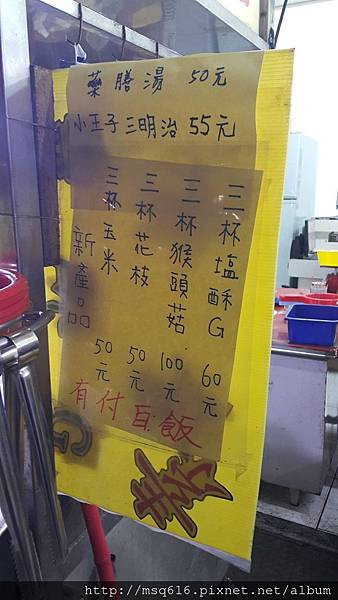 藥膳湯 50元
小王子三明治 55元
三杯塩酥G 60元
三杯猴頭菇 100元
三杯花枝 50元
三杯玉米 50元
新產品
有付白飯
G
http://msq616.pixnet.net/album